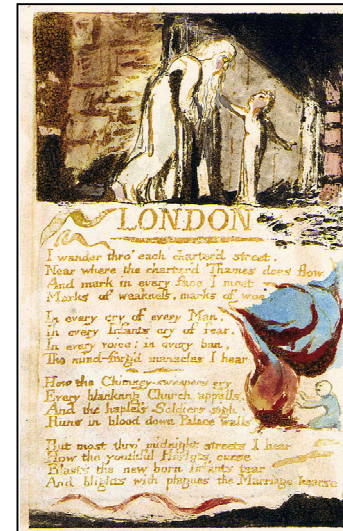 LONDON
I wander thro' each charter'd street,
Near where the charter'd Thames does flow
And mark in every face I meet
Marks of weakness, marks of woe
In every cry of every Man,
In every Infants cry of fear,
In every voice; in every ban,
The mind-forg'd manacles I hear
How the Chimney-sweepers cry
Every blackning Church appalls,
And the hapless Soldiers sigh
Runs in blood down Palace walls
But most thro' midnight streets I hear
How the youthful Harlots curse
Blasts the new born Infants tear
And blights with plagues the Marriage hearse